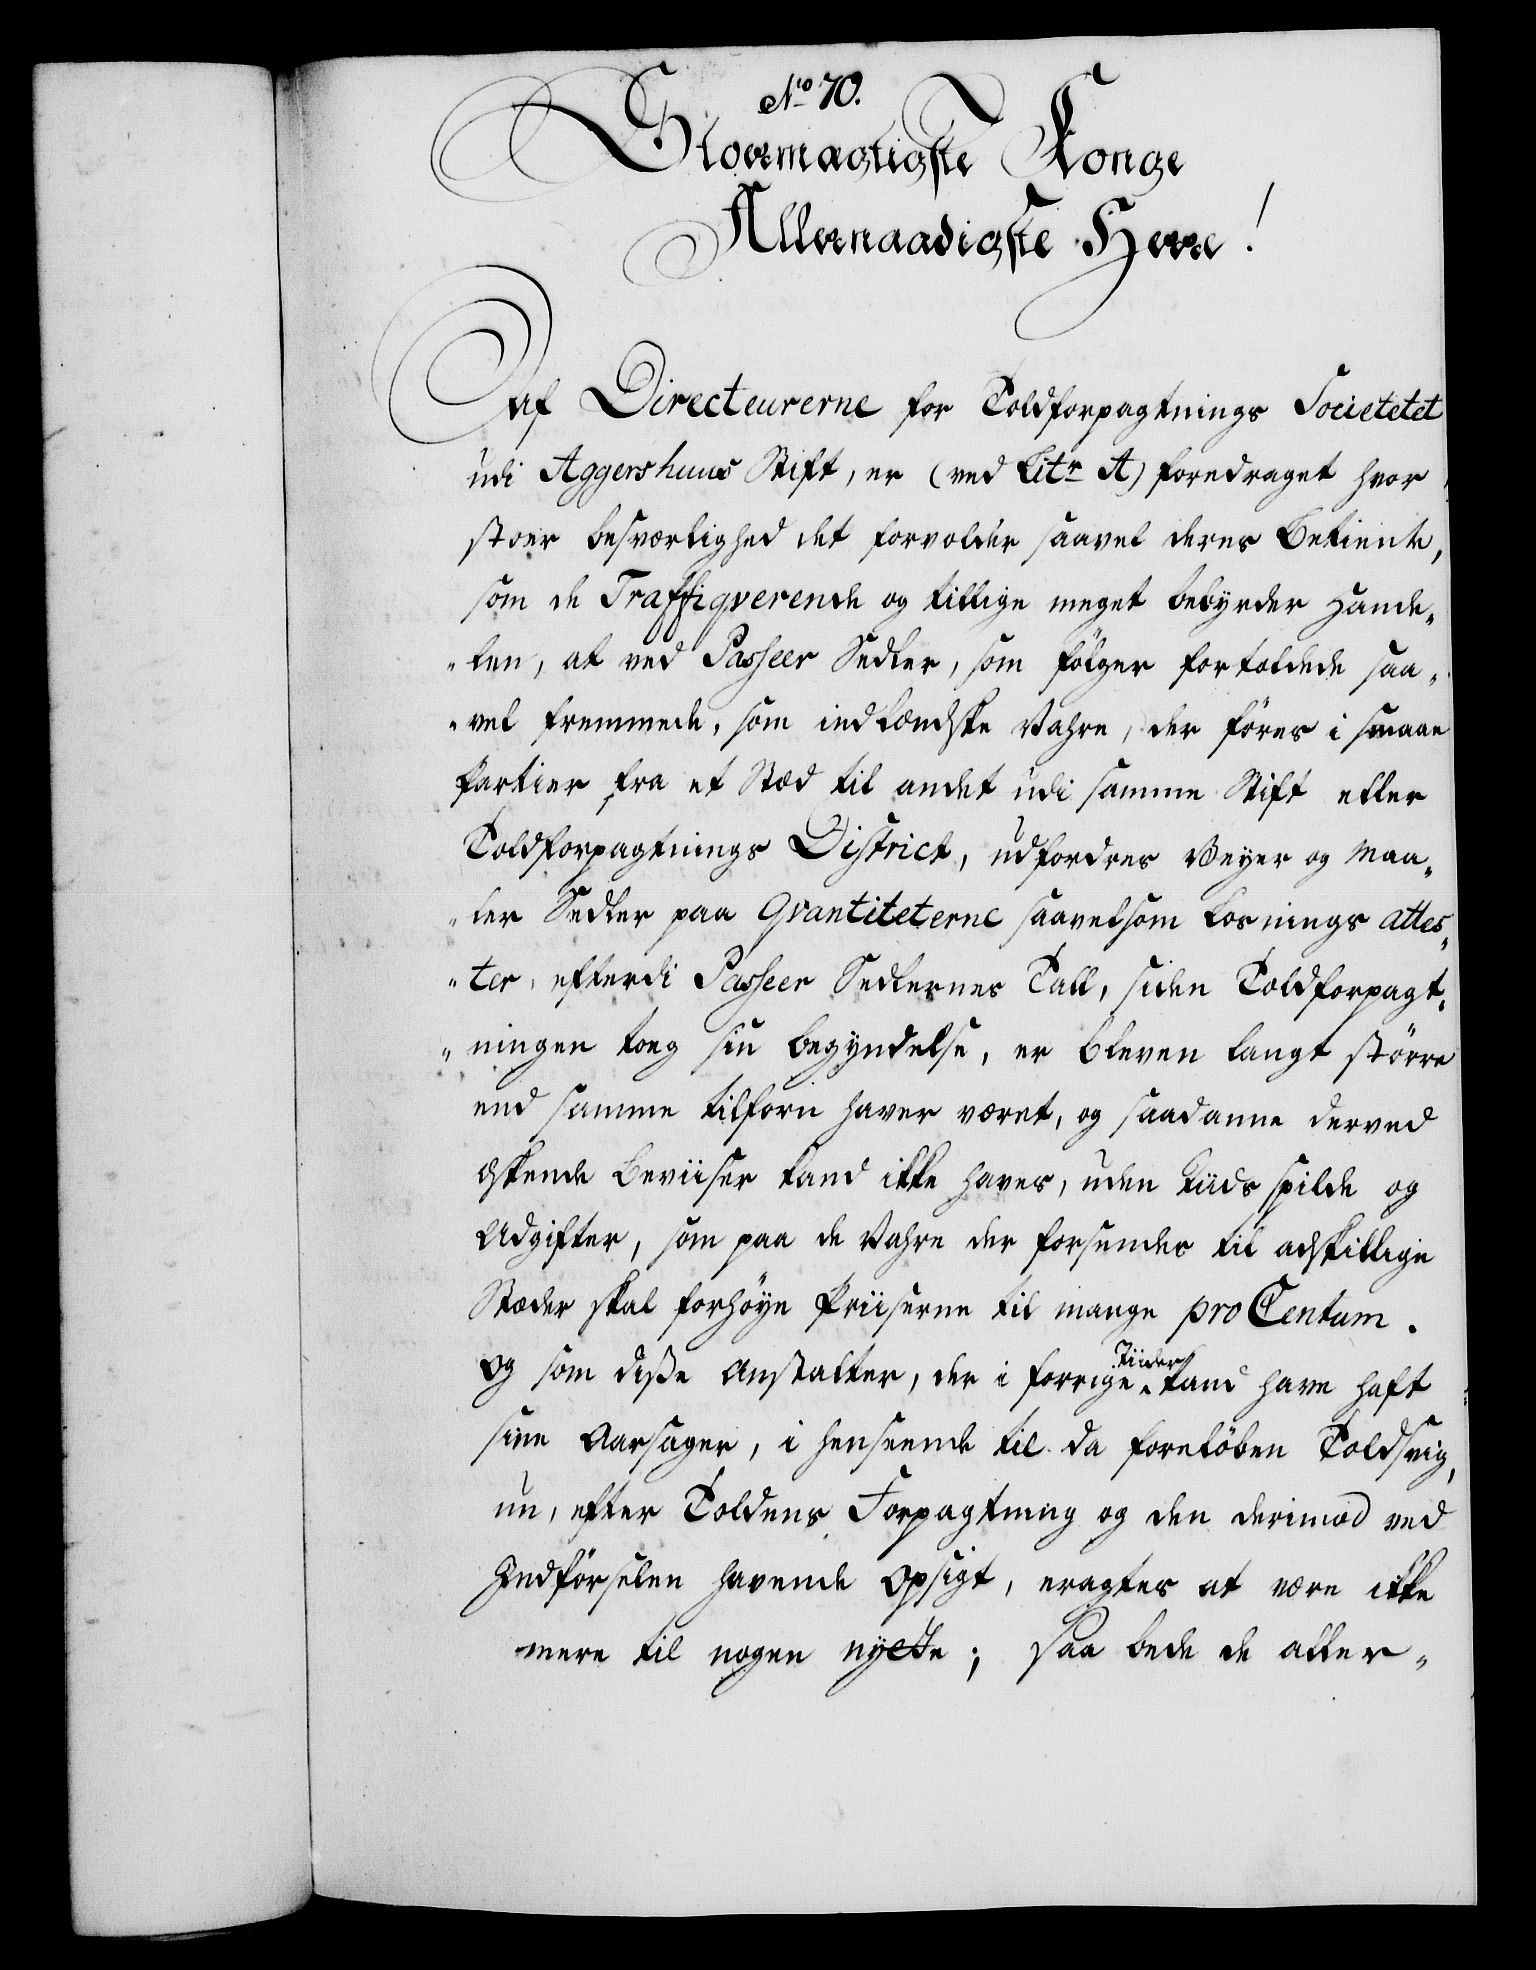 No 70.
Stormægtigste Konge
Allernaadigste Herre!
Af Directeurerne for Toldforpagtnings Societetet
udi Aggershuus Stift, er (ved Litr A) foredraget hvor
stoer besværlighed det forvolder saavel deres Betiente,
som de Traffiqverende og tillige meget bebyrder Hande„
„len, at ved Passeer Sedler, som fölger fortoldede saa„
„vel fremmede, som indlændske Vahre, der föres i smaae
Partier fra et Stæd til andet udi samme Stift eller
Toldforpagtnings District, udfordres Veyer og Maa„
„ler Sedler paa Qvantiteterne saavelsom Losnings attes„
„ter, efterdi Passeer Sedlernes Tall, siden Toldforpagt„
„ningen toeg sin begyndelse, er bleven langt större
end samme tilforn haver været, og saadanne derved
æskende Beviiser kand ikke haves, uden Tiids spilde og
Udgifter, som paa de Vahre der forsendes til adskillige
Stæder skal forhöye Priiserne til mange pro Centum.
Og som disse Anstalter, der i forrige Tiider kand have haft
sine Aarsager, i henseende til da foreløben Toldsvig,
nu, efter Toldens Forpagtning og den derimod ved
Indförselen havende Opsigt, eragtes at være ikke
mere til nogen nyette; saa bede de aller„